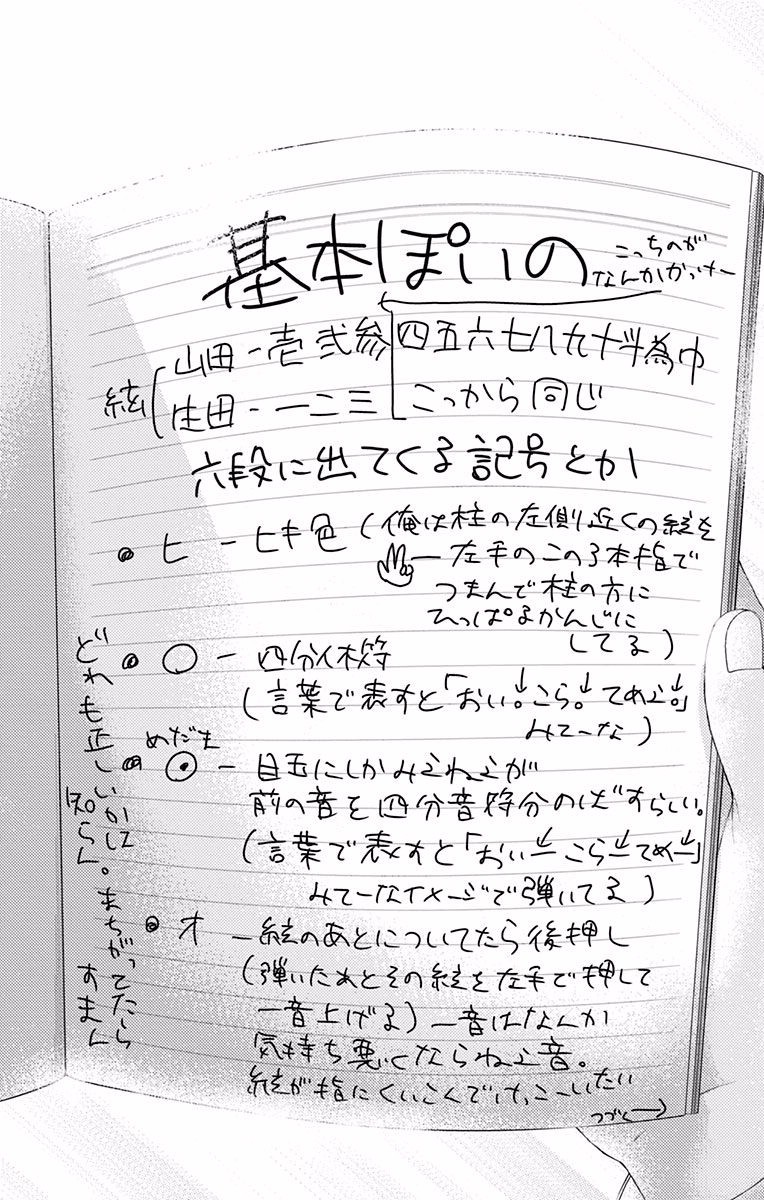 基本ぽいの
こっちのが
なんかかっけー
絃
山田-壱弐参
四五六七八九十斗為巾
生田-一二三
こっから同じ
六段に出てくる記号とか
●ヒ-ヒキ色(俺は柱の左側近くの絃を
―左手のこの3本指で
つまんで柱の方に
ひっぱるかんじに
してる)
●○-四分休符
(言葉で表すと「おい↓。こら↓。てめえ↓。」
みてーな)
めだま
●⦿-目玉にしかみえねえが
前の音を四分音符分のばすらしい。
(言葉で表すと「おい― こら― てめ―」
みてーなイメージで弾いてる)
●オ-絃のあとについてたら後押し
(弾いたあとその絃を左手で押して
一音上げる)一音はなんか
気持ち悪くならねえ音。
絃が指にくいこんでけっこーいたい
つづく→
どれも正しいかして
知らん。まちがってたら
すまん